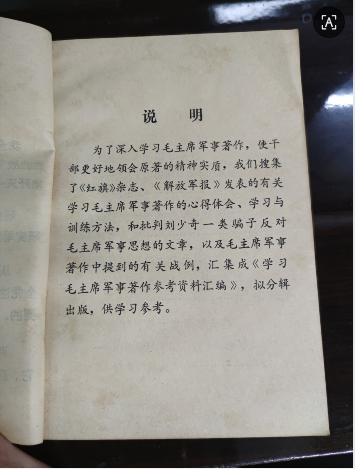 说 明
为了深入学习毛主席军事著作，使干
部更好地领会原著的精神实质，我们搜集
了《红旗》杂志、《解放军报》发表的有关
学习毛主席军事著作的心得体会、学习与
训练方法，和批判刘少奇一类骗子反对
毛主席军事思想的文章，以及毛主席军事
著作中提到的有关战例，汇集成《学习
毛主席军事著作参考资料汇编》，拟分辑
出版，供学习参考。